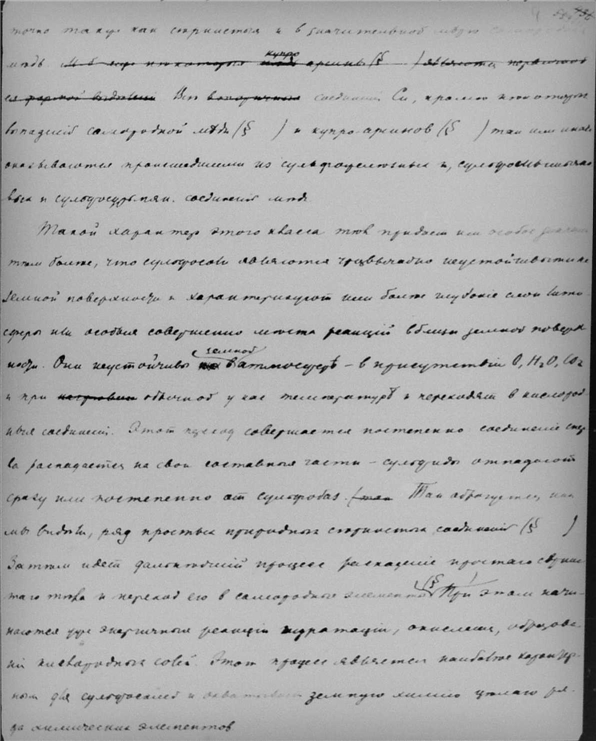 точно также как сернистыя и в значительной мѣрѣ самородная
мѣдь купро
Всѣ вторичныя соединенія Cu, кромѣ
выпаденій самородной мѣди (§ ) и купро-арсинов (§ ) так или иначе
оказываются происшедшими из сульфо и, сульфо
вых и сульфосурьмян. соединеній мѣди
Такой характер этого класса тѣл придает им особое значеніе
тѣм болѣе, что сульфосоли являются чрезвычайно неустойчивыми на
земной поверхности и характеризуют или болѣе глубокіе слои лито-
сферы или особыя совершенно мѣста реакцій вблизи земной поверх-
ности. Они неустойчивы в земной атмосферѣ – в присутствіи O, H2O, CO2
и при обычной у нас температурѣ и переходят в кислород-
ныя соединенія. Этот переход совершается постепенно соединеніе
распадается на свои составныя части – сульфиды отпадают
сразу или постепенно от сульфобаз. Так образуется, как
мы видѣли, ряд простых природных сернистых соединеній (§ )
Затѣм идет дальнѣйшій процесс распаденія простого сѣрни-
стаго тѣла и переход его в самородные элементы (§ ) При этом начи-
наются уже энергичныя реакціи гидратаціи, окисленія, образова-
нія кислородных солей. Этот процесс является наиболѣе характер-
ным для сульфосолей и земную химію цѣлаго ря-
да химических элементов